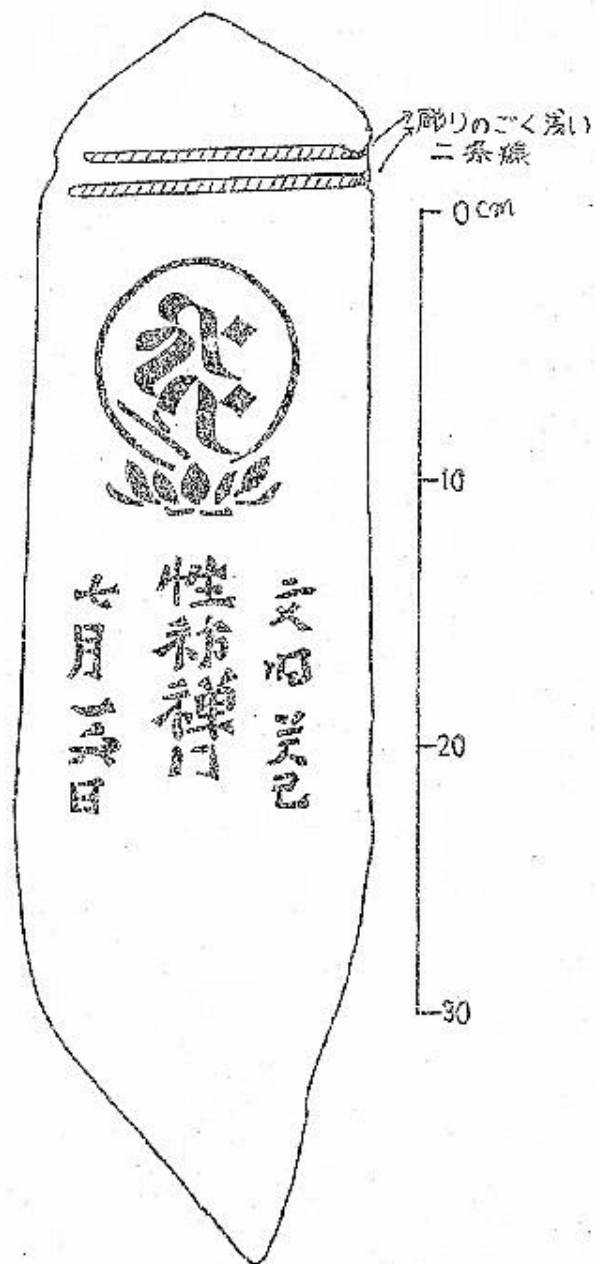 彫りのごく浅い
二条線
0cm
10
20
30
文明癸巳
性 禅门
七月 日